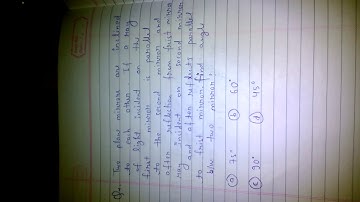 Q. Two plane mirrors are inclined
to each other. If a ray
of light incident on the
first mirror is parallel
to the second mirror and
after reflection from first mirror
ray incident on second mirror
and after reflects parallel
to first mirror. find angle
b/w two mirror:
(a) 75° (b) 60°
(c) 90° (d) 45°